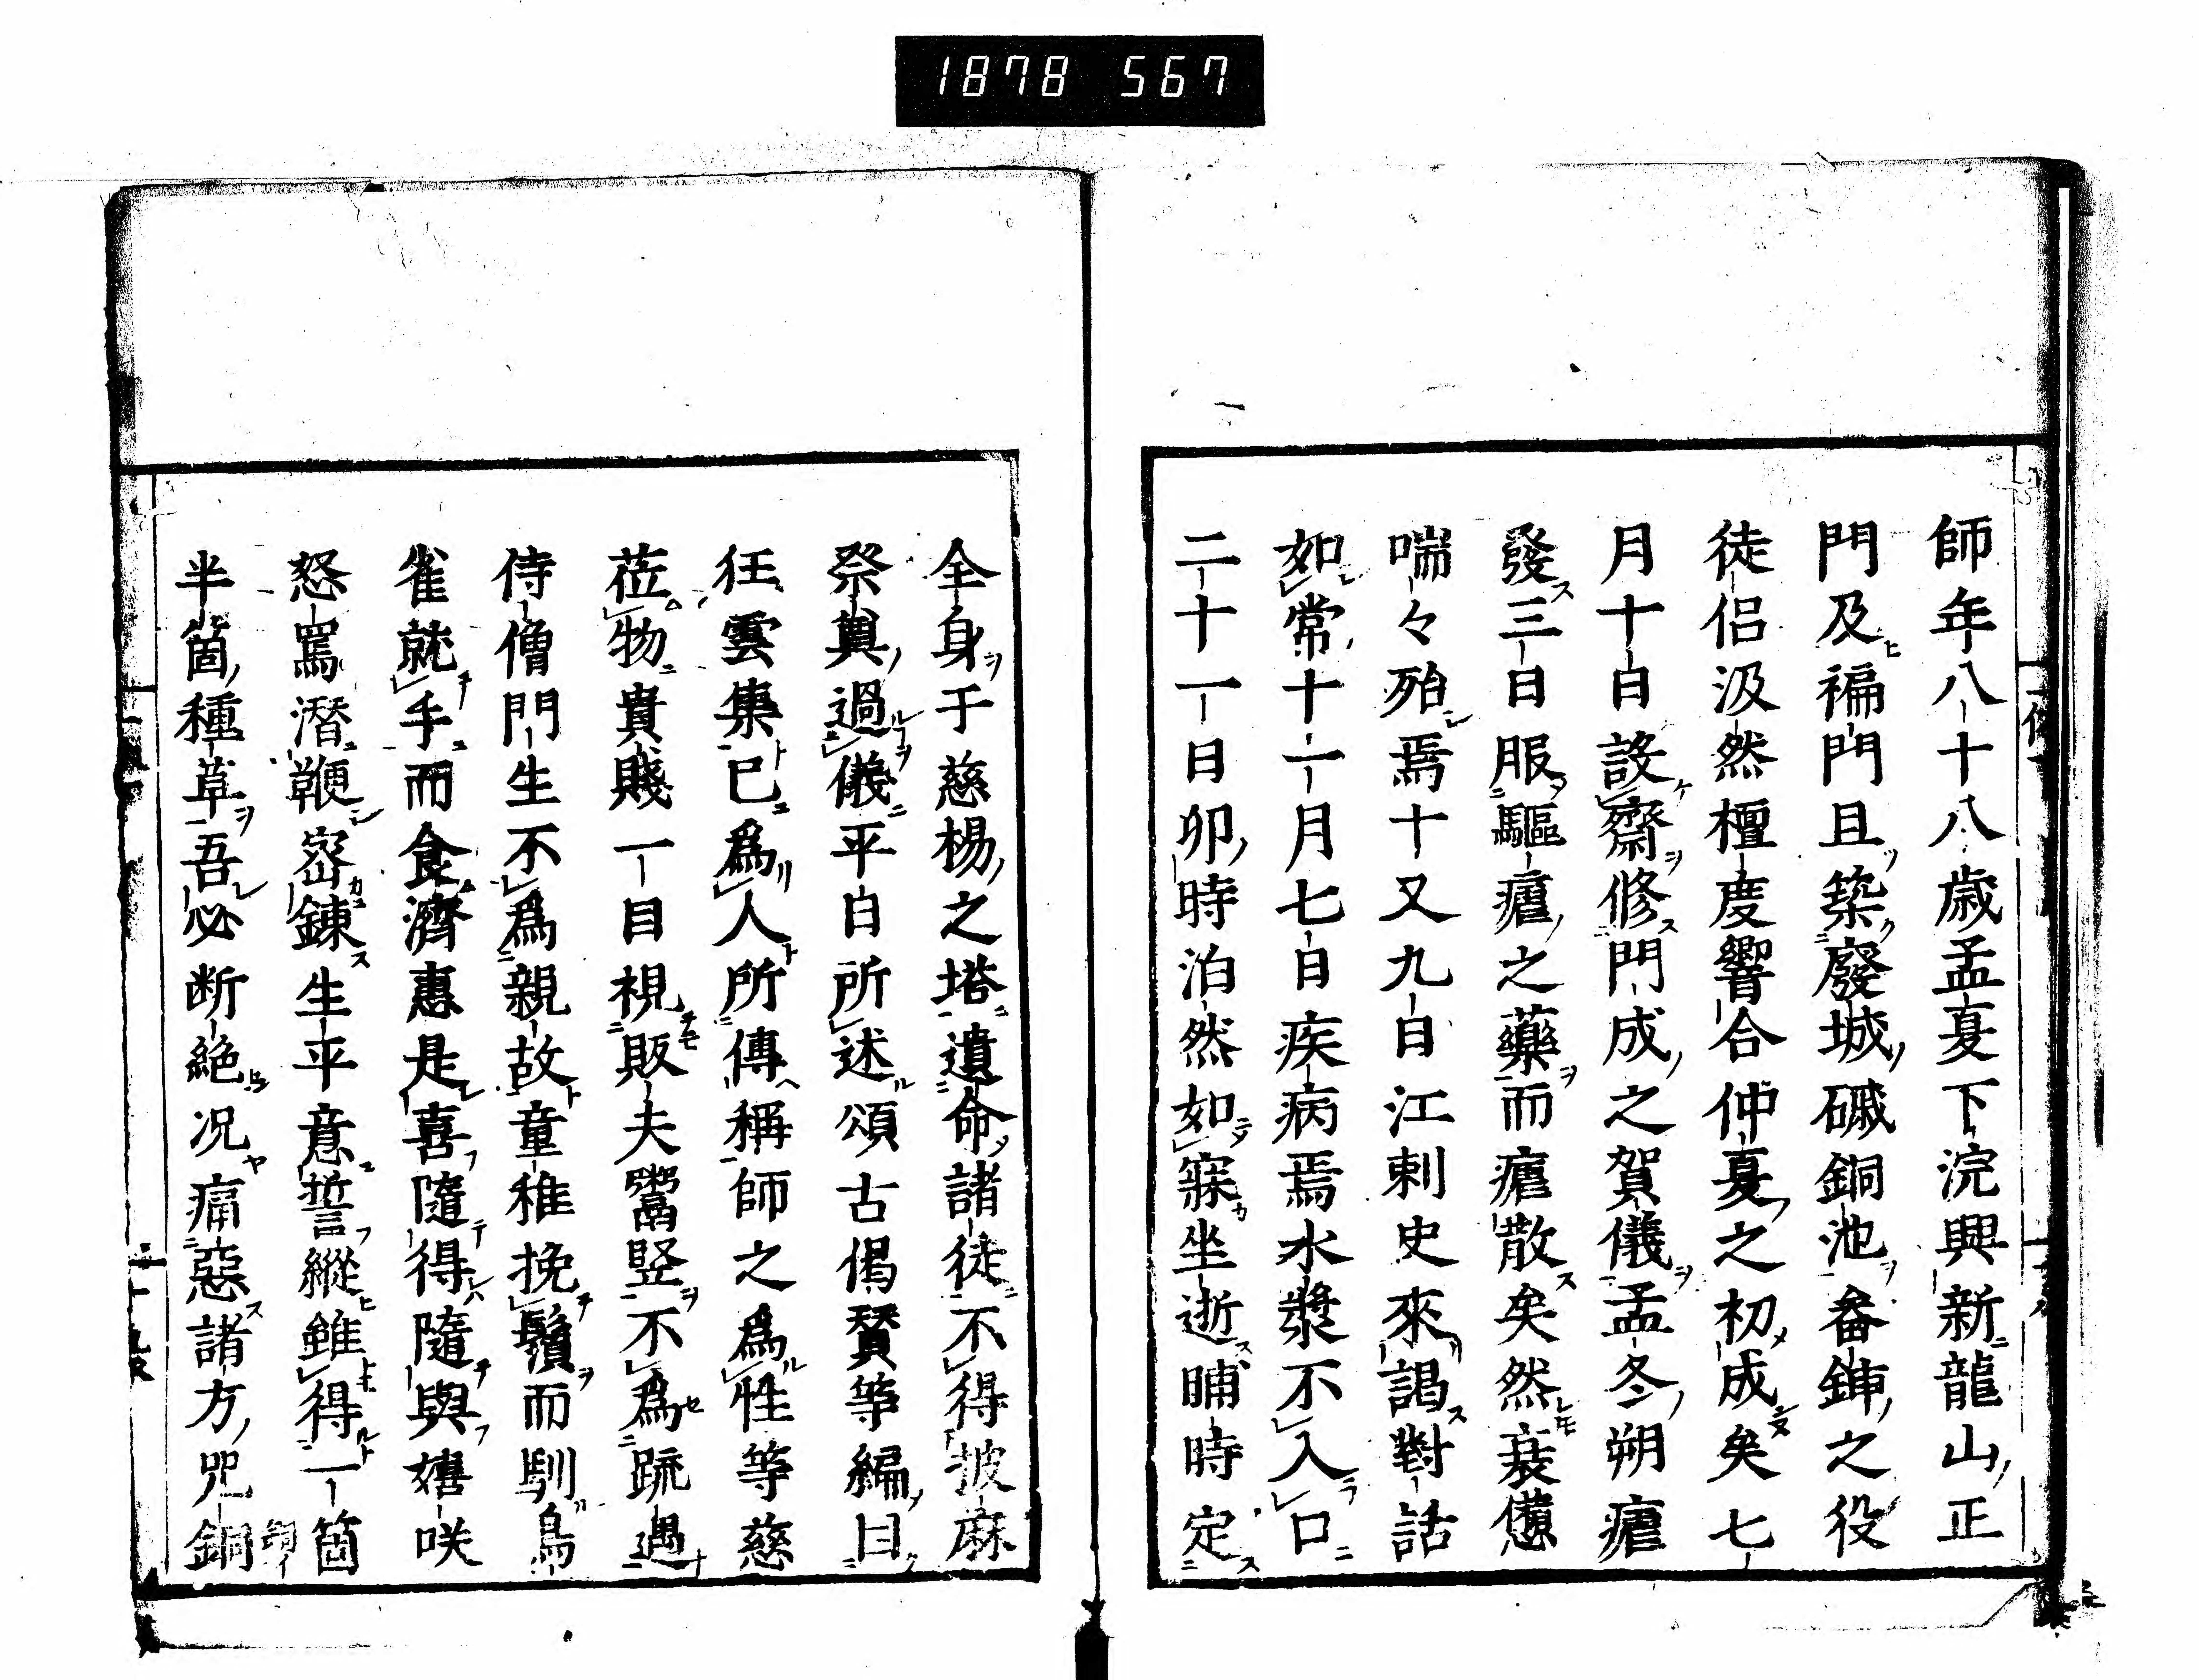 1878 567
師年八十八歳孟夏下浣興新龍山正
門及褊門且築廢城礆銅池畚鍤之役
徒侶汲然檀度響合仲夏之初成矣七
月十日設齋修門成之賀儀孟冬朔瘧
發三日服驅瘧之藥而瘧散矣然衰憊
喘々殆焉十又九日江刺史來謁對話
如常十一月七日疾病焉水漿不入口
二十一日卯時泊然如寐坐逝晡時定
全身于慈楊之塔遺命諸徒不得披麻
祭奠過儀平日所述頌古偈賛等編曰
狂雲集已爲人所傳稱師之爲性等慈
莅物貴賤一目視販夫鬻竪不爲疏遇
侍僧門生不爲親故童稚挽鬚而馴鳥
雀就手而食濟惠是喜隨得隨與嬉咲
怒罵潛鞭密錬生平意誓縱雖得一箇
半箇種草吾必断絶况痛惡諸方咒銅